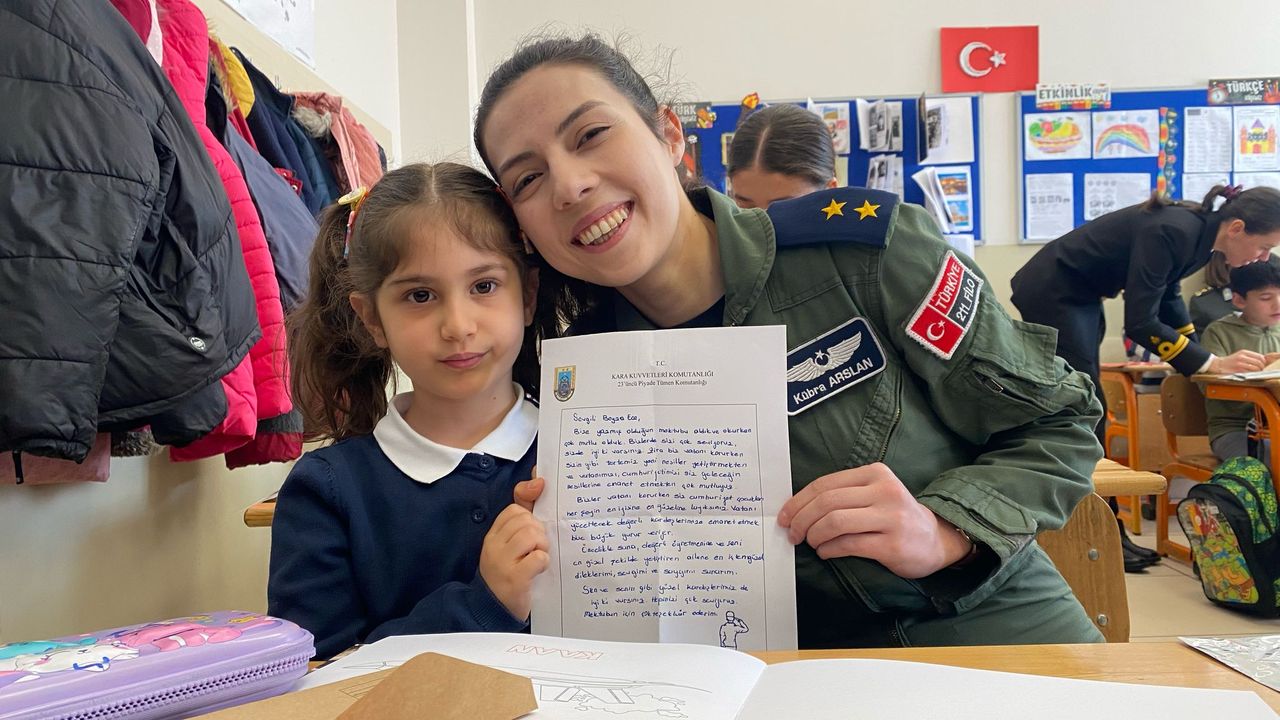 ETKİNLİK
TÜRKÇE
TÜRK
TÜRKİYE
211. FİLO
Kübra ARSLAN
T.C.
KARA KUVVETLERİ KOMUTANLIĞI
23'üncü Piyade Tümen Komutanlığı
Sevgili Beyza Ece,
Bize yazmış olduğun mektubu aldık ve okurken
çok mutlu olduk. Bizlerde sizi çok seviyoruz,
sizde iyi ki varsınız. Zira biz vatanı korurken
sizin gibi tertemiz yeni nesiller yetiştirmekten
ve vatanımızı, cumhuriyetimizi siz geleceğin
nesillerine emanet etmekten çok mutluyuz.
Bizler vatanı korurken siz cumhuriyet çocukları
her şeyin en iyisine en güzeline layıksınız. Vatanı
yüceltecek değerli kardeşlerimize emanet etmek
bize büyük gurur veriyor.
Öncelikle sana, değerli öğretmenine ve seni
en güzel şekilde yetiştiren ailene en içten güzel
dileklerimi, sevgimi ve saygımı sunarım.
Sen ve senin gibi güzel kardeşlerimiz de
iyi ki varsınız. Hepinizi çok seviyoruz.
Mektubun için çok teşekkür ederim.
KAAN